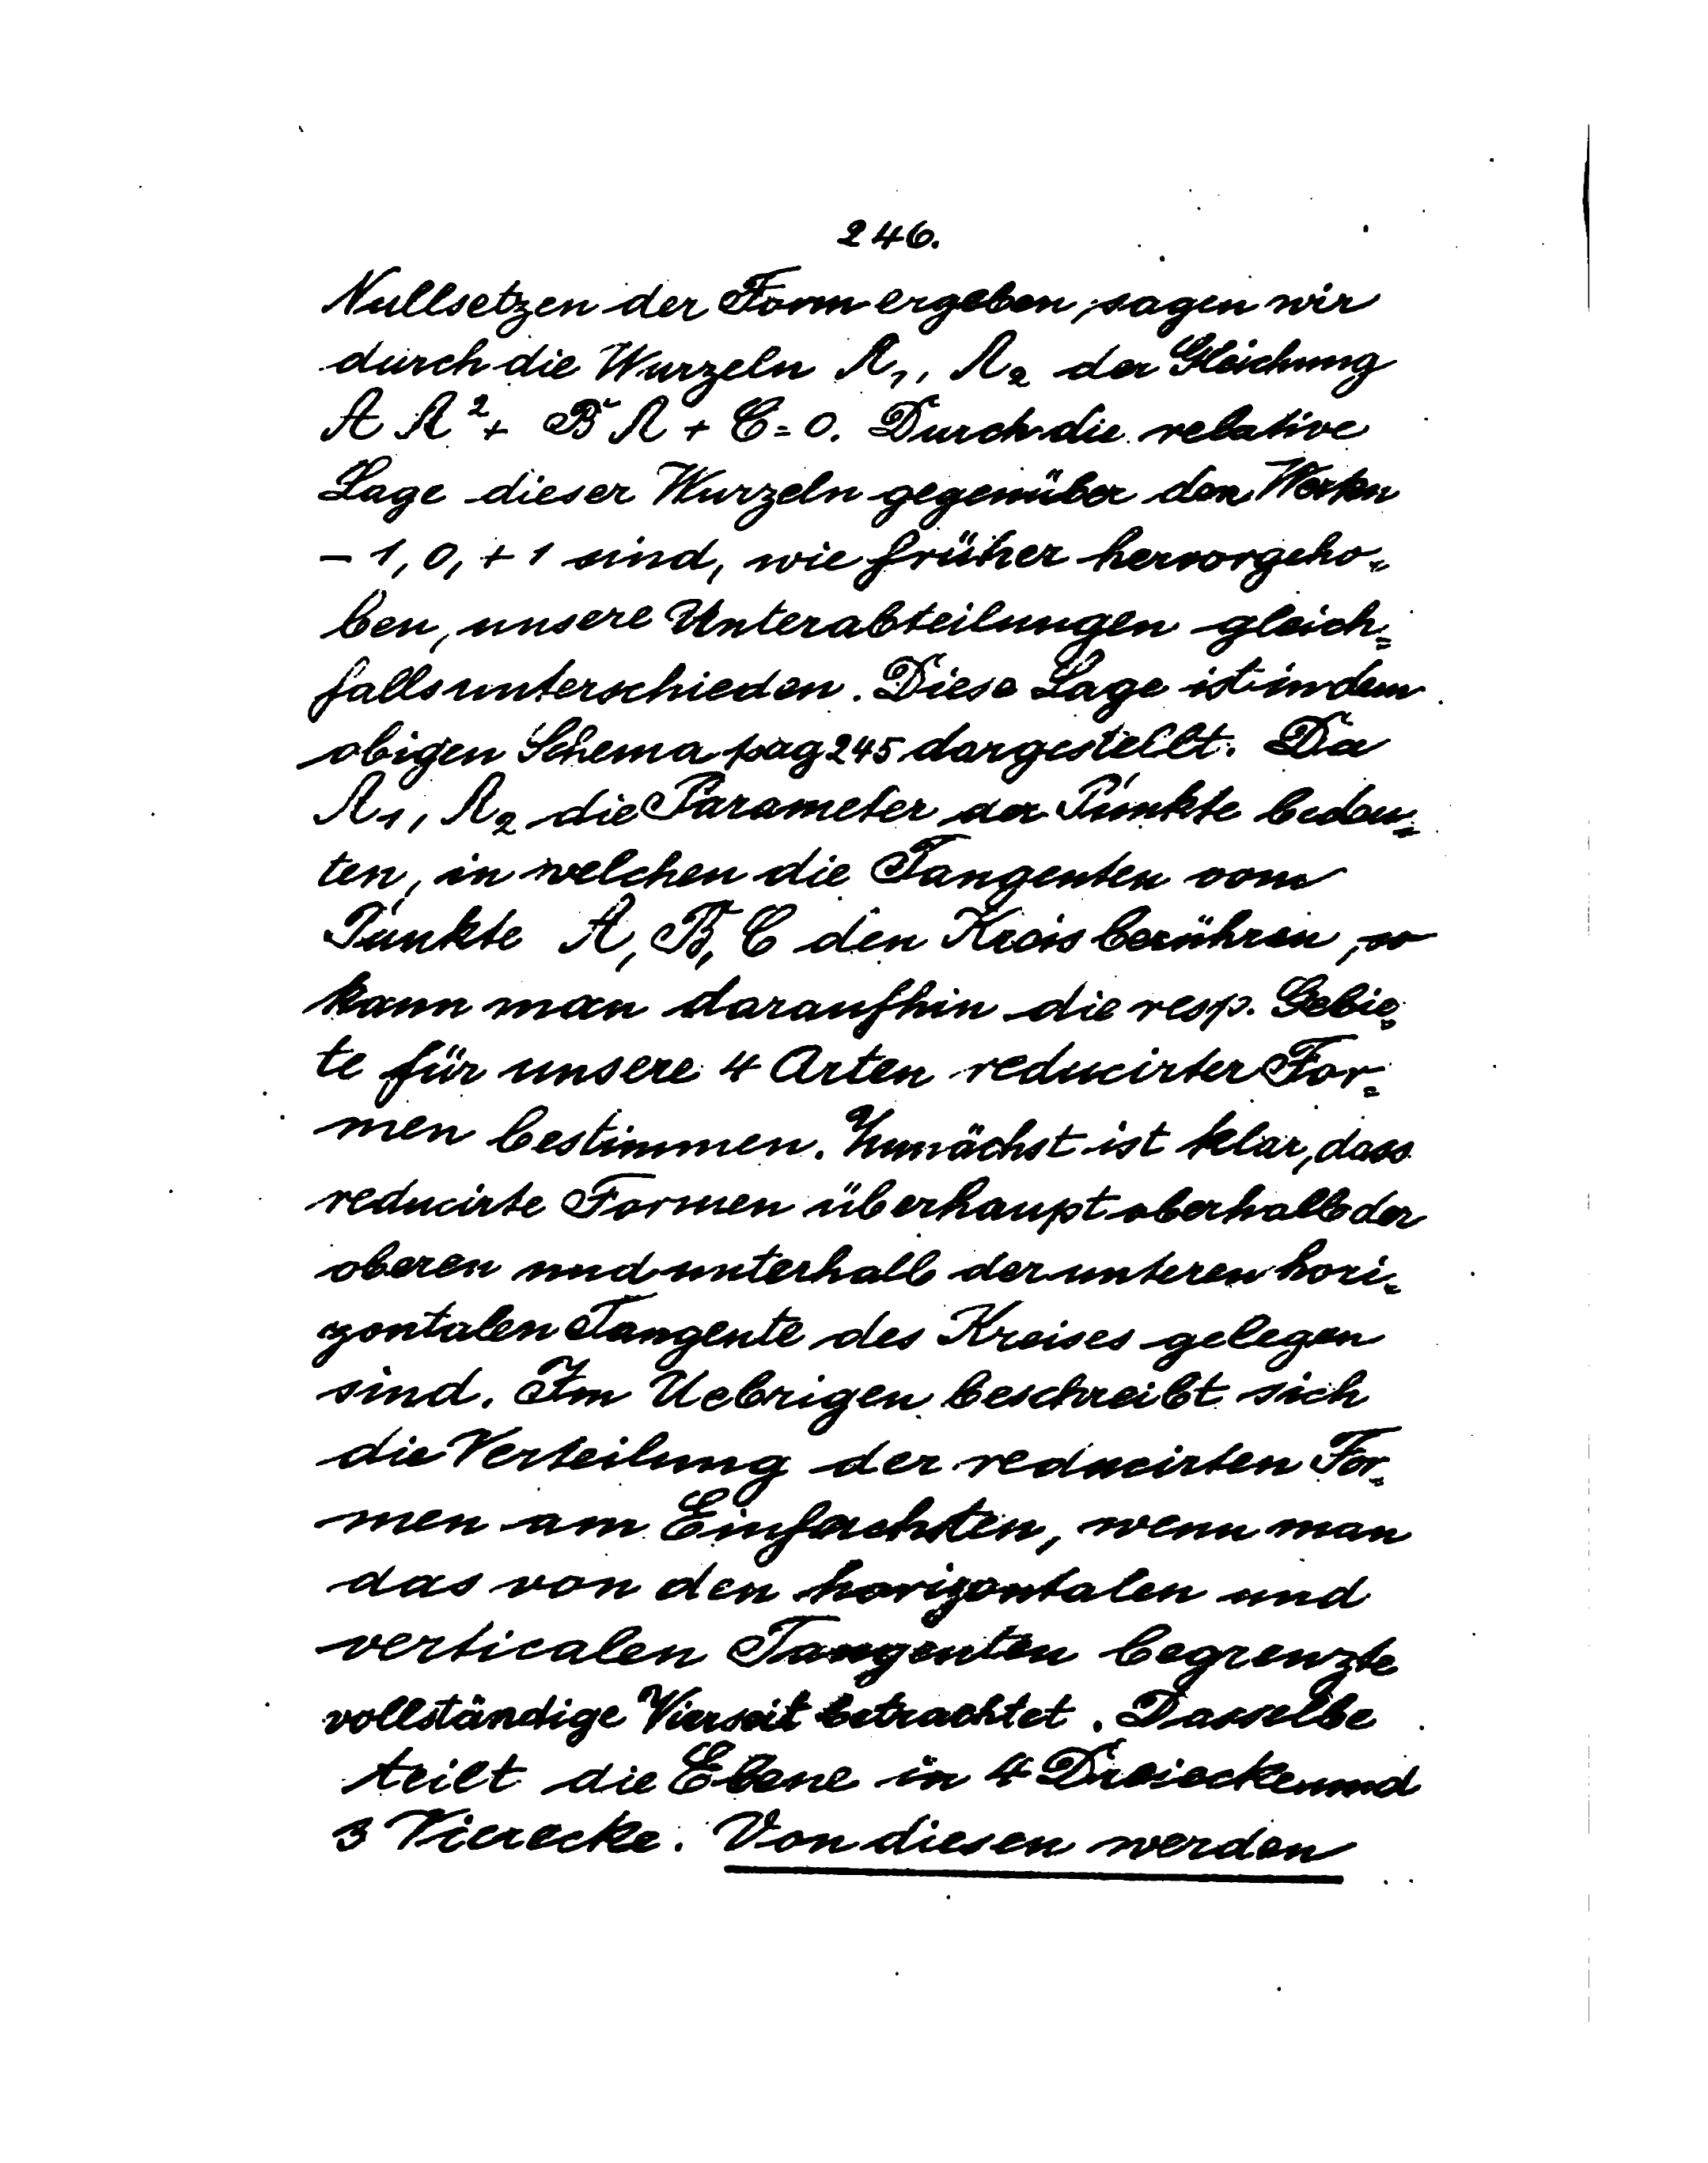 246.
Nullsetzen der Form ergeben, sagen wir
durch die Wurzeln Λ₁, Λ₂ der Gleichung
A Λ² + B Λ + C = 0. Durch die relative
Lage dieser Wurzeln gegenüber den Werten
− 1, 0, + 1 sind, wie früher hervorgeho-
ben, unsere Unterabteilungen gleich-
falls unterschieden. Diese Lage ist in dem
obigen Schema pag 245 dargestellt. Da
Λ₁, Λ₂ die Parameter der Punkte bedeu-
ten, in welchen die Tangenten vom
Punkte A, B, C den Kreis berühren, so
kann man daraufhin die resp. Gebie-
te für unsere 4 Arten reducirter For-
men bestimmen. Zunächst ist klar, dass
reducirte Formen überhaupt oberhalb der
oberen und unterhalb der unteren hori-
zontalen Tangente des Kreises gelegen
sind. Im Uebrigen beschreibt sich
die Verteilung der reducirten For-
men am Einfachsten, wenn man
das von den horizontalen und
verticalen Tangenten begrenzte
vollständige Vierseit betrachtet. Dasselbe
teilt die Ebene in 4 Dreiecke und
3 Vierecke. Von diesen werden